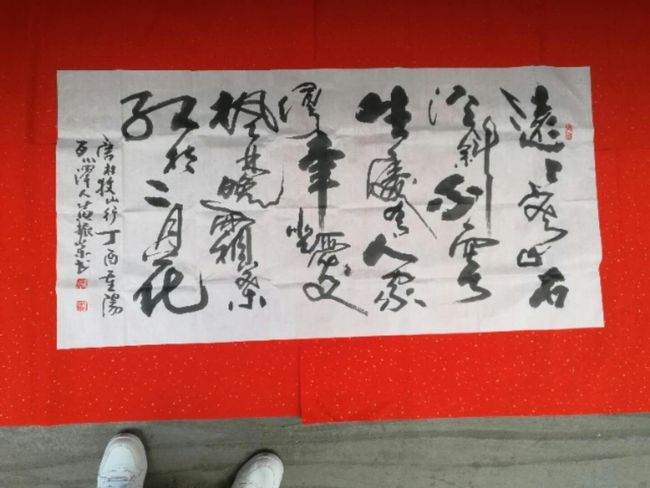 遠上寒山石
徑斜白雲
生處有人家
停車坐愛
楓林晚霜葉
紅於二月花
唐杜牧山行丁酉重陽
澤人振书